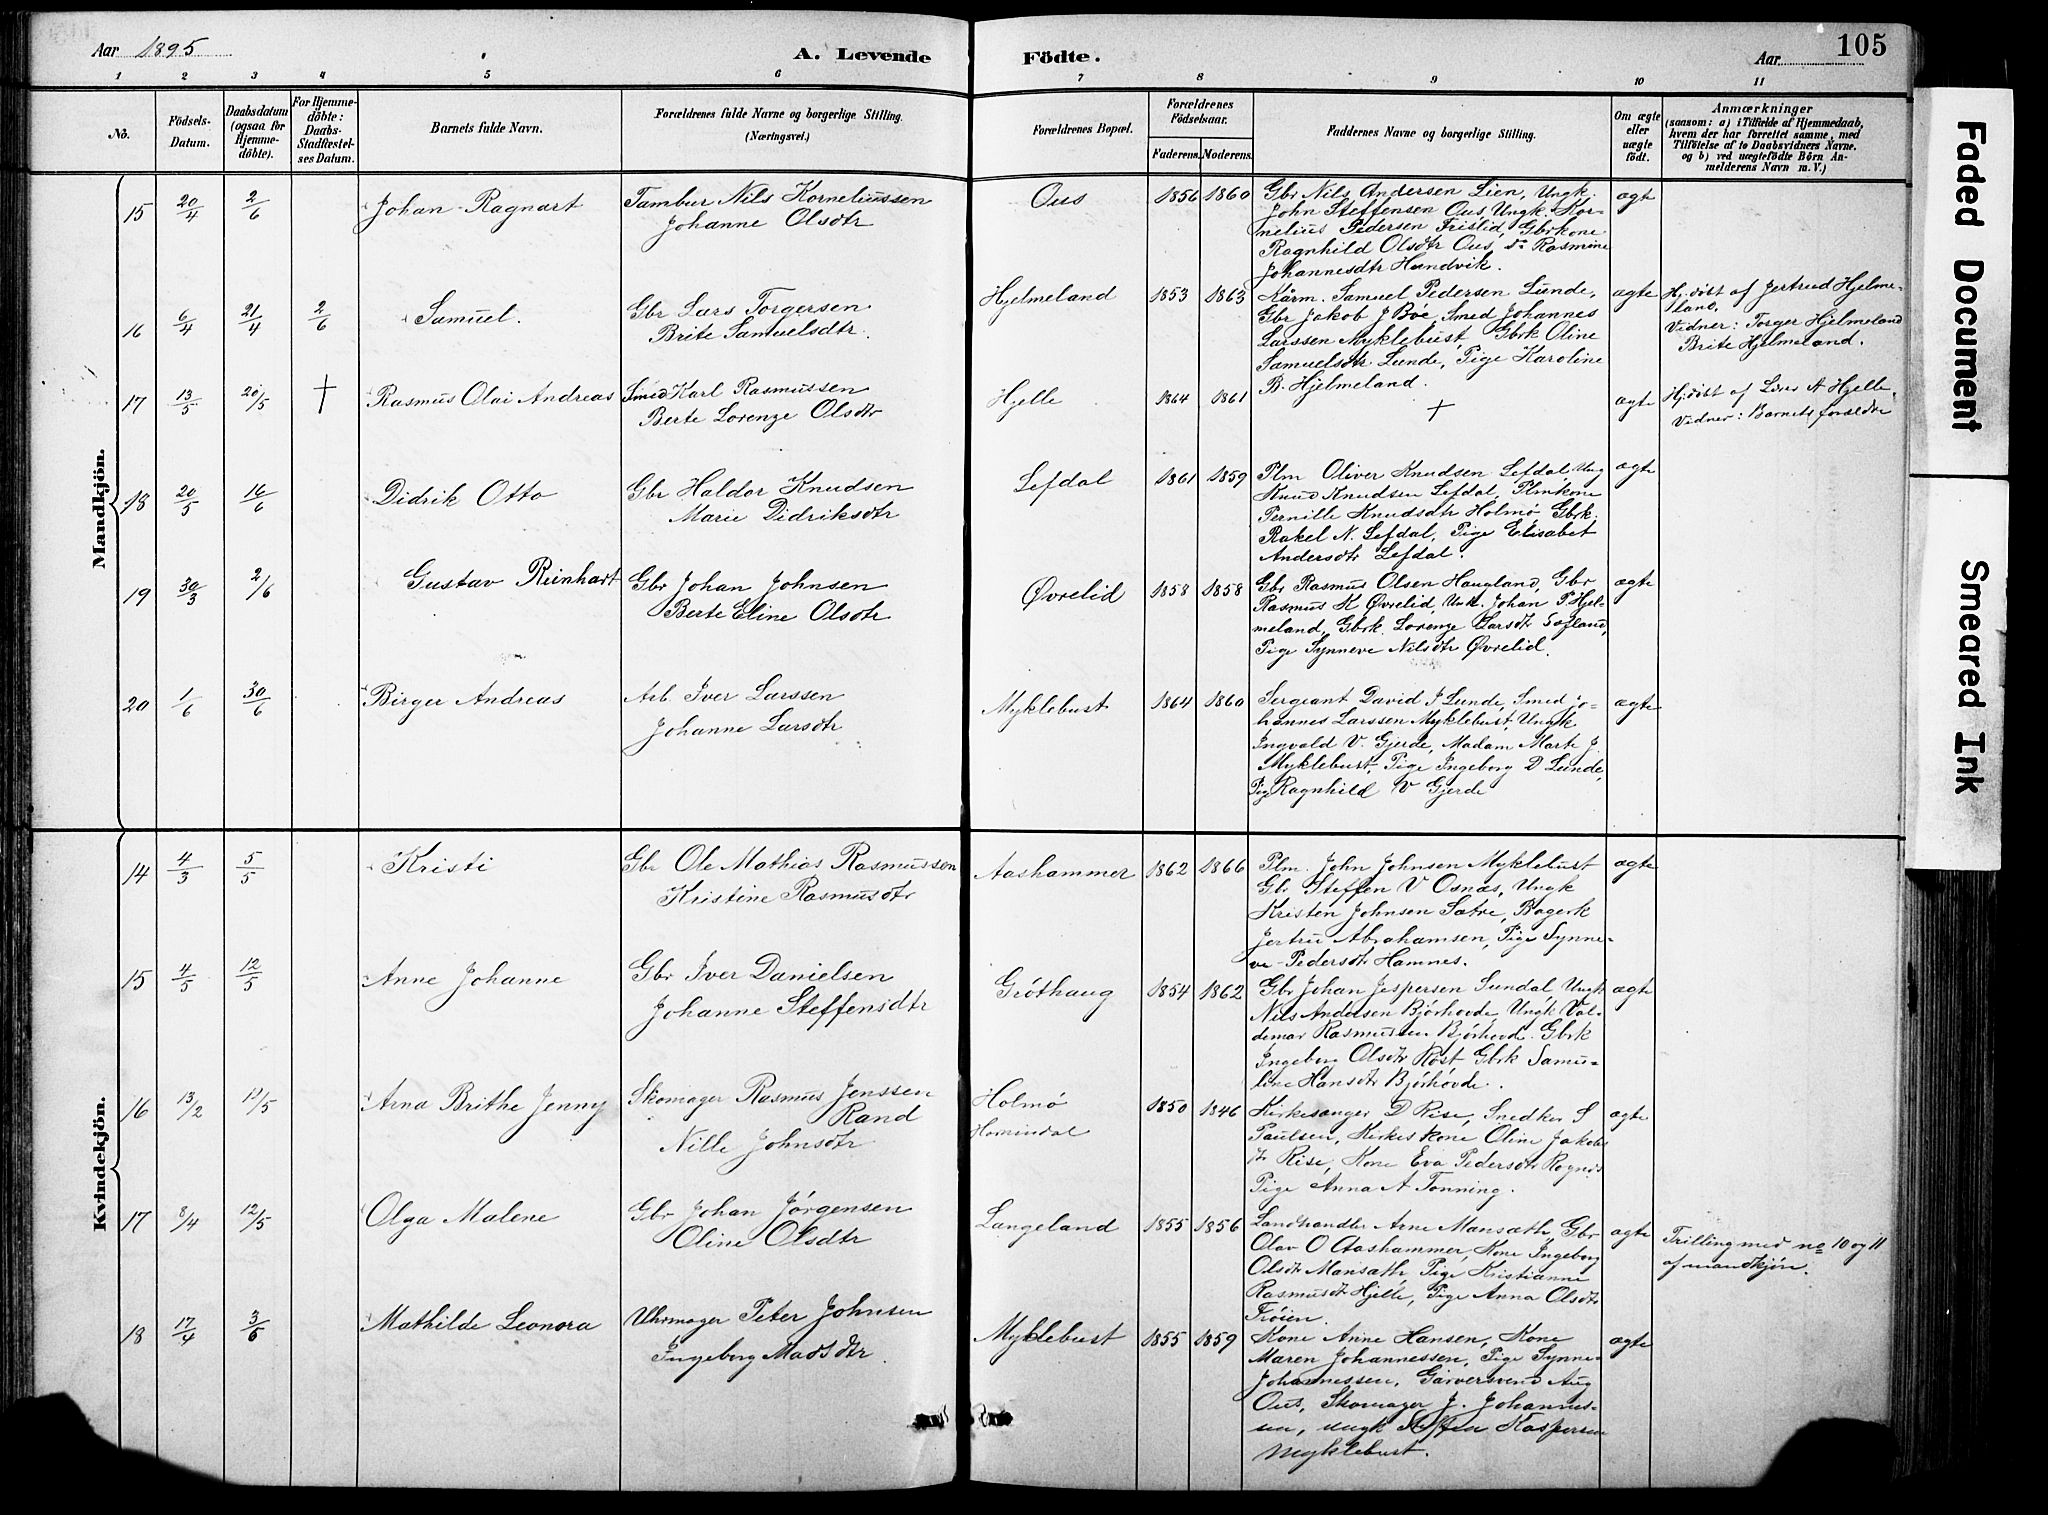 Aar 1895
A. Levende
Födte.
Aar
105
1 2 3 4 5 6 7 8 9 10 11
No.
Födsels-Datum.
Daabsdatum (ogsaa for Hjemme-döbte).
For Hjemme-döbte: Daabs-Stadfæstel-ses Datum.
Barnets fulde Navn.
Forældrenes fulde Navne og borgerlige Stilling.
(Næringsvei.)
Forældrenes Bopæl.
Forældrenes Födselsaar.
Faderens. Moderens.
Faddernes Navne og borgerlige Stilling.
Om ægte eller uægte födt.
Anmærkninger
(saasom: a) i Tilfælde af Hjemmedaab, hvem der har forrettet samme, med Tilföielse af to Daabsvidners Navne. og b) ved uægtefödte Börn An-melderens Navn m. V.)
Mandkjön.
15 20/4 2/6 Johan Ragnart Tambur Nils Korneliussen Ous 1856 1860 Gbr Nils Andersen Lien, Ungk. ægte
Johanne Olsdtr John Steffensen Ous, Ungk. Kor-
nelius Pedersen Frislid, Gbrkone
Ragnhild Olsdtr Ous, do Rasmine
Johannesdtr Hundvik.
16 6/4 21/4 2/6 Samuel. Gbr Lars Torgersen Hjelmeland 1853 1863 Kårm. Samuel Pedersen Lunde, ægte Hj.döbt af Jertrud Hjelme-
Brite Samuelsdtr. Gbr Jakob J Böe, Smed Johannes land.
Larssen Myklebust, Gbrk Oline Vidner: Torger Hjelmeland
Samuelsdtr Lunde, Pige Karoline Brite Hjelmeland.
B. Hjelmeland.
17 13/5 20/5 † Rasmus Olai Andreas Smed Karl Rasmussen Hjelle 1864 1861 † ægte Hj.döbt af Lars A Hjelle,
Berte Lorenze Olsdtr Vidner: Barnets forældre
18 20/5 16/6 Didrik Otto Gbr Haldor Knudsen Lefdal 1861 1859 Plm Oliver Knudsen Lefdal, Ung ægte
Marie Didriksdtr Knud Knudsen Lefdal, Plmkone
Pernille Knudsdtr Holmö Gbrk.
Rakel N. Lefdal, Pige Elisabet
Andersdtr Lefdal.
19 30/3 2/6 Gustav Reinhart Gbr Johan Johnsen Øvrelid 1858 1858 Gbr Rasmus Olsen Haugland, Gbr ægte
Berte Eline Olsdtr Rasmus K Øvrelid, Unk. Johan P. Hjel-
meland, Gbrk. Lorenze Larsdtr
Pige Synneve Nilsdtr Øvrelid.
20 1/6 30/6 Birger Andreas Arb. Iver Larssen Myklebust 1864 1860 Sergeant David J Lunde, Smed Jo- ægte
Johanne Larsdtr hannes Larssen Myklebust, Ungk
Ingvald V. Gjerde, Madam Marte J.
Myklebust, Pige Ingeborg D Lunde,
Pige Ragnhild V Gjerde
Kvindekjön.
14 4/3 5/5 Kristi Gbr Ole Mathias Rasmussen Aashammer 1862 1866 Plm. John Johnsen Myklebust ægte
Kristine Rasmusdtr Gbr Steffen V Osnæs, Ungk
Kristen Johnsen Sætre, Bagerk
Jertru Abrahamsen, Pige Synne-
ve Pedersdtr Hamnes.
15 4/5 12/5 Anne Johanne Gbr Iver Danielsen Gröthaug 1854 1862 Gbr Johan Jespersen Sundal, Ungk ægte
Johanne Steffensdtr Nils Andersen Bjørhovde, Ungk Val-
demar Rasmussen Bjørhovd. Gbrk
Ingeborg Olsdtr Röst Gbrk Samu-
line Hansdtr Bjørhövde.
16 13/2 12/5 Arna Brithe Jenny Skomager Rasmus Jenssen Holmö 1850 1846 Kirkesanger D Rise, Snedker S ægte
Rand Hornindal Paulsen, Kirkes kone Oline Jakobs
Nille Johnsdtr dtr Rise, Kone Eva Pedersdtr Rognes
Pige Anna A Tonning.
17 8/4 12/5 Olga Malene Gbr Johan Jørgensen Langeland 1855 1856 Landhandler Arne Mansæth, Gbr ægte Trilling med no 10 og 11
Oline Olsdtr Olav O Aashammer, Kone Ingeborg af mandkjön.
Olsdtr Mansæth, Pige Kristianne
Rasmusdtr Hjelle, Pige Anna Olsdtr
Fröien.
18 17/4 3/6 Mathilde Leonora Uhrmager Peter Johnsen Myklebust 1855 1859 Kone Anne Hansen, Kone ægte
Ingeborg Madsdtr. Maren Johannessen, Pige Synne
Johannessen, Garversvend Aug
Ous, Skomager J. Johannes-
sen, ungk Steffen Kaspersen
Myklebust.
Faded Document
Smeared Ink